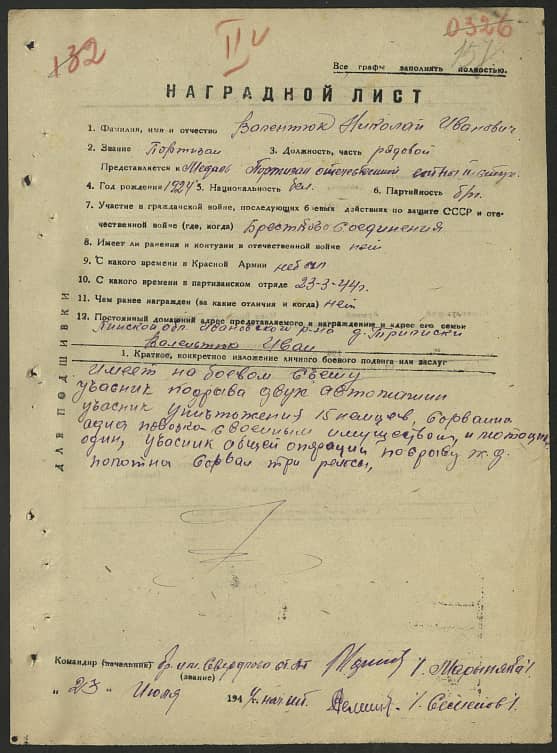 132
II
0326
Все графы заполнять полностью.
НАГРАДНОЙ ЛИСТ
1. Фамилия, имя и отчество Валентюк Николай Иванович.
2. Звание Портизан 3. Должность, часть рядовой
Представляется к Медаль Портизан отечественной войны II степ.
4. Год рождения 1924 5. Национальность бел. 6. Партийность б/п.
7. Участие в гражданской войне, последующих боевых действиях по защите СССР и оте-
чественной войне (где, когда) Брестково Соединения
8. Имеет ли ранения и контузии в отечественной войне нет
9. С какого времени в Красной Армии не был
10. С какого времени в партизанском отряде 23-3-44г.
11. Чем ранее награжден (за какие отличия и когда) нет
12. Постоянный домашний адрес представляемого к награждению и адрес его семьи
Пинской обл. Ивановский р-но д.
Валентюк Иван
1. Краткое, конкретное изложение личного боевого подвига или заслуг
Имеет на боевом Счету
участник подрыва двух автомашин
участник уничтожения 15 немцев,
адна повозка с военым имуществом, и
один, участник общей операции подрыву ж.д.
полотна Сорвал три рельсы,
ДЛЯ ПОДШИВКИ
Командир (начальник) бр. им. Свердлова
(звание)
„ 23 „ Июля 1944 г. нач. шт. / Семенов /.